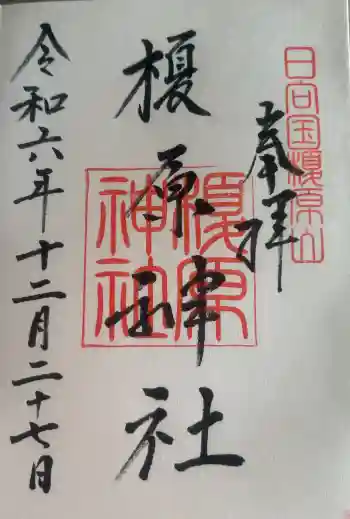 日向国榎原山
奉拝
榎原神社
榎原
神社
令和六年十二月二十七日